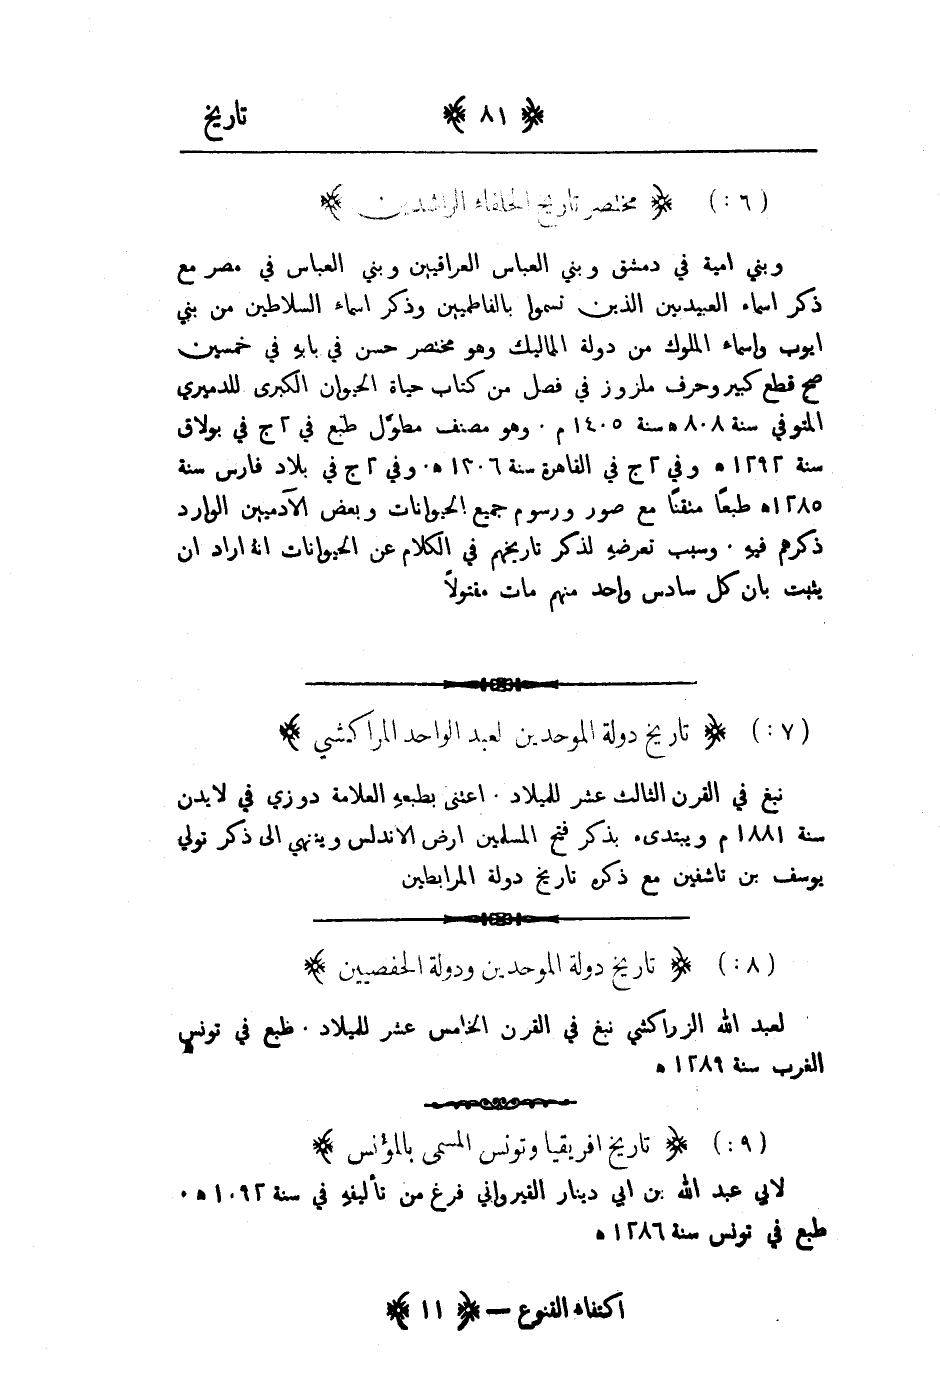 ﴿ ٨١ ﴾ تاريخ
(٦:) ﴿ مختصر تاريخ الخلفاء الراشدين ﴾
وبني امية في دمشق وبني العباس العراقيين وبني العباس في مصر مع
ذكر اسماء العبيديين الذين تسموا بالفاطميين وذكر اسماء السلاطين من بني
ايوب واسماء الملوك من دولة المماليك وهو مختصر حسن في بابهِ في خمسين
صح قطع كبير وحرف ملزوز في فصل من كتاب حياة الحيوان الكبرى للدميري
المتوفي سنة ٨٠٨ ه سنة ١٤٠٥ م . وهو مصنف مطوّل طبع في ٢ ج في بولاق
سنة ١٢٩٢ ه وفي ٢ ج في القاهرة سنة ١٣٠٦ ه. وفي ٢ ج في بلاد فارس سنة
١٢٨٥ه طبعًا متقنًا مع صور ورسوم جميع الحيوانات وبعض الآدميين الوارد
ذكرهم فيهِ . وسبب تعرضهِ لذكر تاريخهم في الكلام عن الحيوانات انهُ اراد ان
يثبت بان كل سادس واحد منهم مات مقتولاً
(٧:) ﴿ تاريخ دولة الموحدين لعبد الواحد المراكشي ﴾
نبغ في القرن الثالث عشر للميلاد . اعتنى بطبعهِ العلامة دوزي في لايدن
سنة ١٨٨١ م ويبتدىء بذكر فتح المسلمين ارض الاندلس وينتهي الى ذكر تولي
يوسف بن تاشفين مع ذكره تاريخ دولة المرابطين
(٨:) ﴿ تاريخ دولة الموحدين ودولة الحفصيين ﴾
لعبد الله الزراكشي نبغ في القرن الخامس عشر للميلاد . طبع في تونس
الغرب سنة ١٢٨٩ ه
(٩:) ﴿ تاريخ افريقيا وتونس المسمى بالمؤنس ﴾
لابي عبد الله بن ابي دينار القيرواني فرغ من تأليفهِ في سنة ١٠٩٢ ه .
طبع في تونس سنة ١٢٨٦ ه
اكتفاء القنوع — ﴿ ١١ ﴾